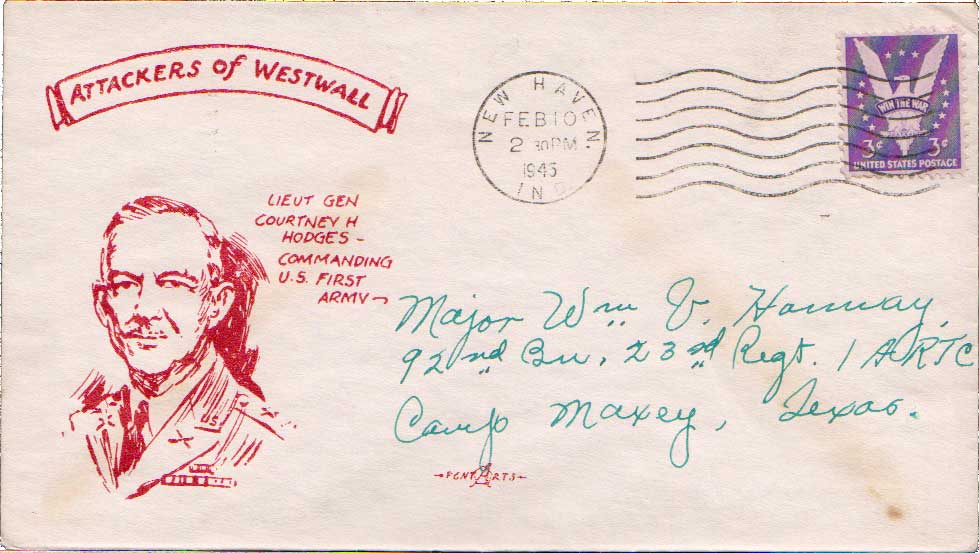 ATTACKERS of WESTWALL
LIEUT GEN
COURTNEY H
HODGES -
COMMANDING
U.S. FIRST
ARMY
NEW HAVEN.
FEB 10
2 30 PM
1945
IND
WIN THE WAR
3¢ 3¢
UNITED STATES POSTAGE
Major Wm V. Hanway,
92nd Bn, 23rd Regt. IARTC
Camp Maxey, Texas.
PENT ARTS